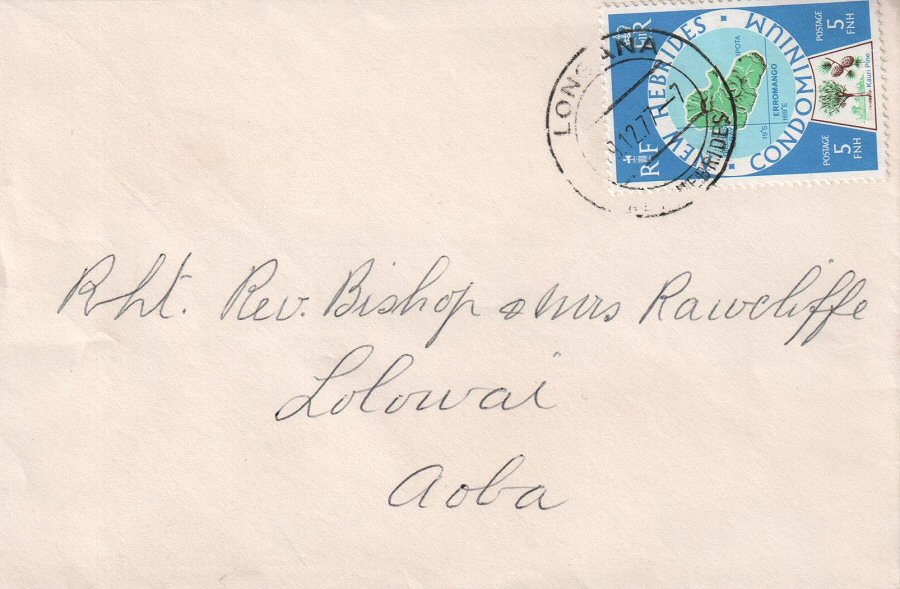 LONGANA
9.12.77-7
NEW HEBRIDES
RF
NEW HEBRIDES CONDOMINIUM
IPOTA
ERROMANGO
19°S
169°E
POSTAGE
5
FNH
Kauri Pine
POSTAGE
5
FNH
Rht. Rev. Bishop & Mrs Rawcliffe
Lolowai
Aoba